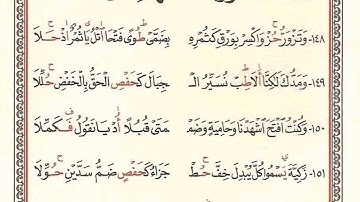 ١٤٨- وَتَزْوَرُّ حُزْ وَاكْسِرْ بِوَرْقِ كَثُمْرِهِ بِضَمَّيْ طُوًى فَتْحًا اتْلُ يَا ثُمْرُ إِذْ حَلَا
١٤٩- وَمَدُّكَ لَكِنَّا أَلَا طِبْ نُسَيِّرُ الْـ جِبَالَ كَحَفْصِ الْحَقُّ بِالْخَفْضِ حُلِّلَا
١٥٠- وَكُنْتُ افْتَحَ اشْهَدْنَا وَحَامِيَةٍ وَضَمْـ مَتَىْ قُبُلًا أُدْ يَا نَقُولُ فَكَمِّلَا
١٥١- زَكِيَّةَ يَسْمُو كُلَّ يُبْدِلَ خِفَّ حُطْ جَزَاءُ كَحَفْصٍ ضَمُّ سَدَّيْنِ حُوِّلَا